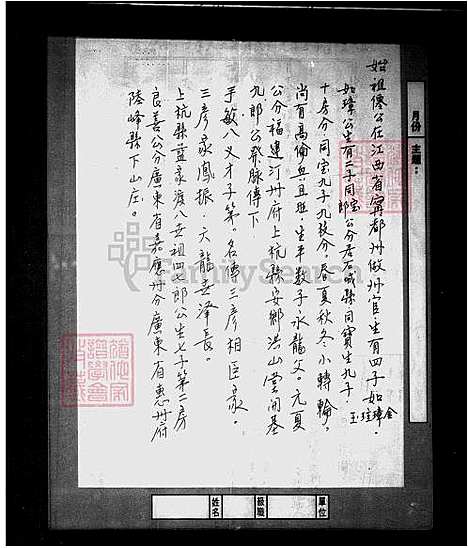 月份 主題：
始祖俊公在江西省寧都州做州官．生有四子如璋．
金
珪
玉
如璋公生有二子同宝
郎公分居石城縣同寶生九子．
十房分．同宝九子九致分．春夏秋冬小轉輪．
尚有高倫與且胜．生平数子永龍父．元夏
公分福建汀州府上杭縣安鄉洪山堂開基
九郎公發脉傳下
于敏八叉才子第．名傳三彦相臣豪．
三彦家鳳振．六龍世澤長．
上杭縣藍家渡八世祖四七郎公生七子第一房
良善公分廣東省嘉應州分廣東省惠州府
陸峰縣下山庄。
FamilySearch
姓名
級職
單位